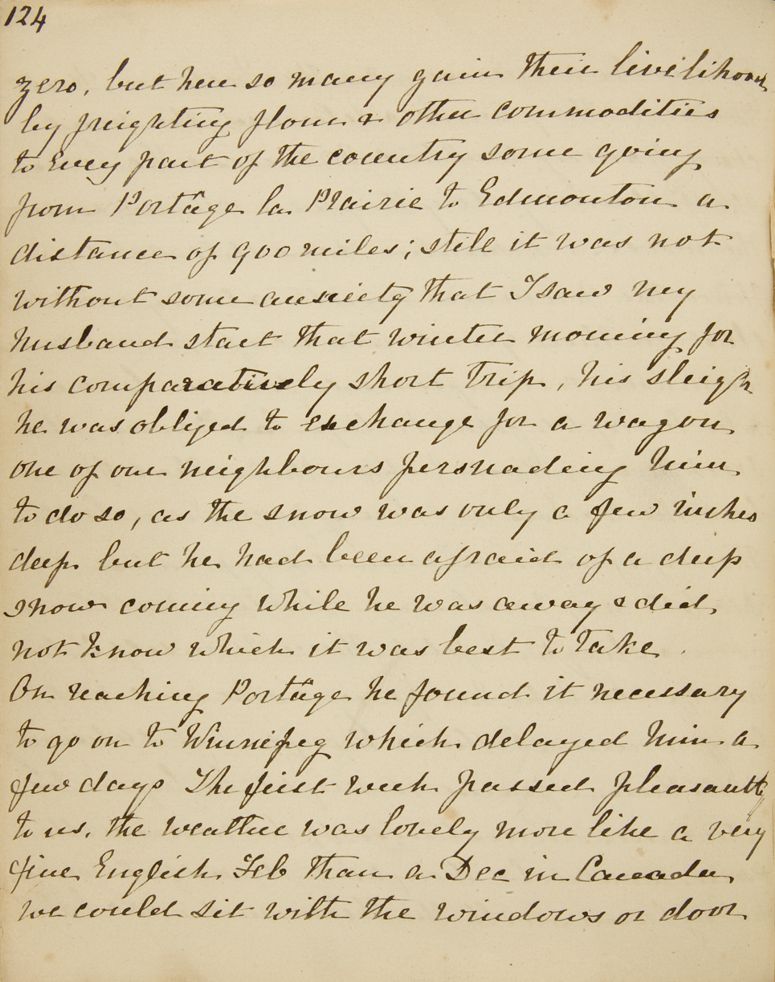 124
zero, but here so many gain their livelihood
by freighting flour & other commodities
to every part of the country some going
from Portâge la Prairie to Edmonton a
distance of 900 miles; still it was not
without some anxiety that I saw my
husband start that winter morning for
his comparatively short trip, his sleigh
he was obliged to exchange for a wagon
one of our neighbours persuading him
to do so, as the snow was only a few inches
deep but he had been afraid of a deep
snow coming while he was away & did
not know which it was best to take.
On reaching Portâge he found it necessary
to go on to Winnipeg which delayed him a
few days The first week passed pleasantly
to us, the weather was lovely more like a very
fine English Feb than a Dec in Canada
we could sit with the windows or door